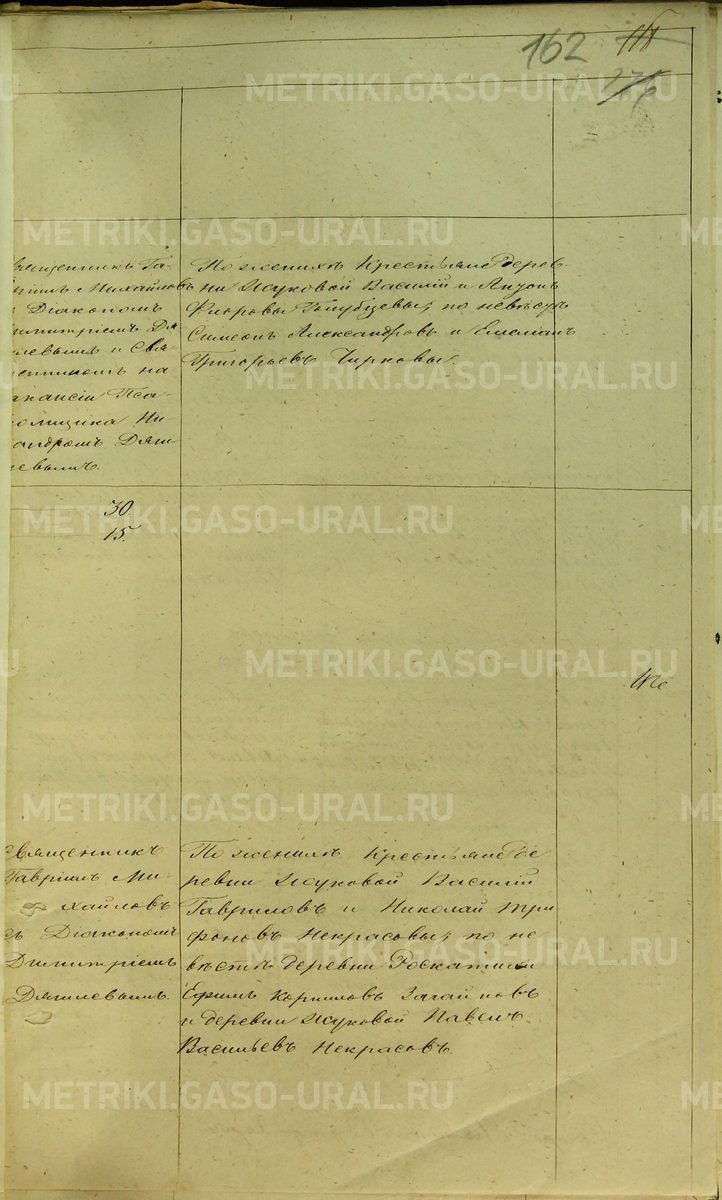 162
METRIKI.GASO-URAL.RU
METRIKI.GASO-URAL.RU
священникъ Га-
вріилъ Михайловъ
Діакономъ
Димитріемъ Дя-
гилевымъ и Свя-
щенникомъ на
вакансіи Пса-
ломщика Ни-
кандромъ Дяги-
левымъ.
По женихѣ крестьяне дерев-
ни Жуковой Василій и
Флоровы по невѣстѣ
Симеонъ Александровъ и Емеліанъ
Григорьевъ Чирковы.
METRIKI.GASO-URAL.RU
30.
15.
METRIKI.GASO-URAL.RU
METRIKI.GASO-URAL.RU
METRIKI.GASO-URAL.RU
Священникъ
Гавріилъ Ми-
хайловъ
съ Діакономъ
Димитріемъ
Дягилевымъ.
По женихѣ крестьяне де
ревни Жуковой Василій
Гавриловъ и Николай Три
фоновъ Некрасовы, по не
вѣстѣ деревни
Ефимъ Корниловъ Загайновъ
и деревни Жуковой Павелъ
Васильевъ Некрасовъ.
METRIKI.GASO-URAL.RU
METRIKI.GASO-URAL.RU